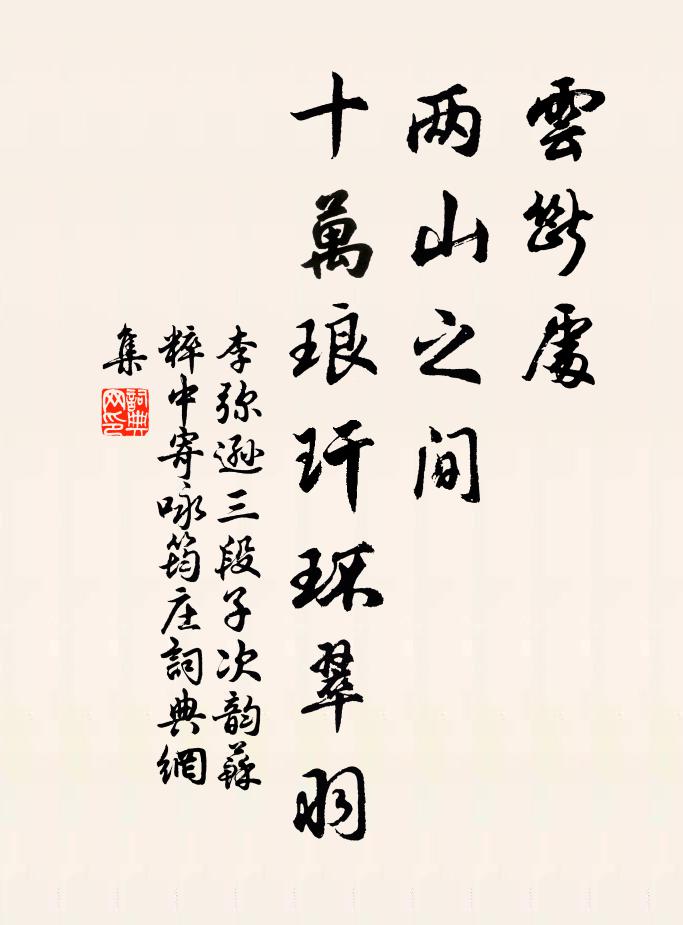 雲斷處
两山之间
十萬琅玕环翠羽
李弥遜三段子次韵蘇
粹中寄咏筠庄詞典網
集
詞典
网印